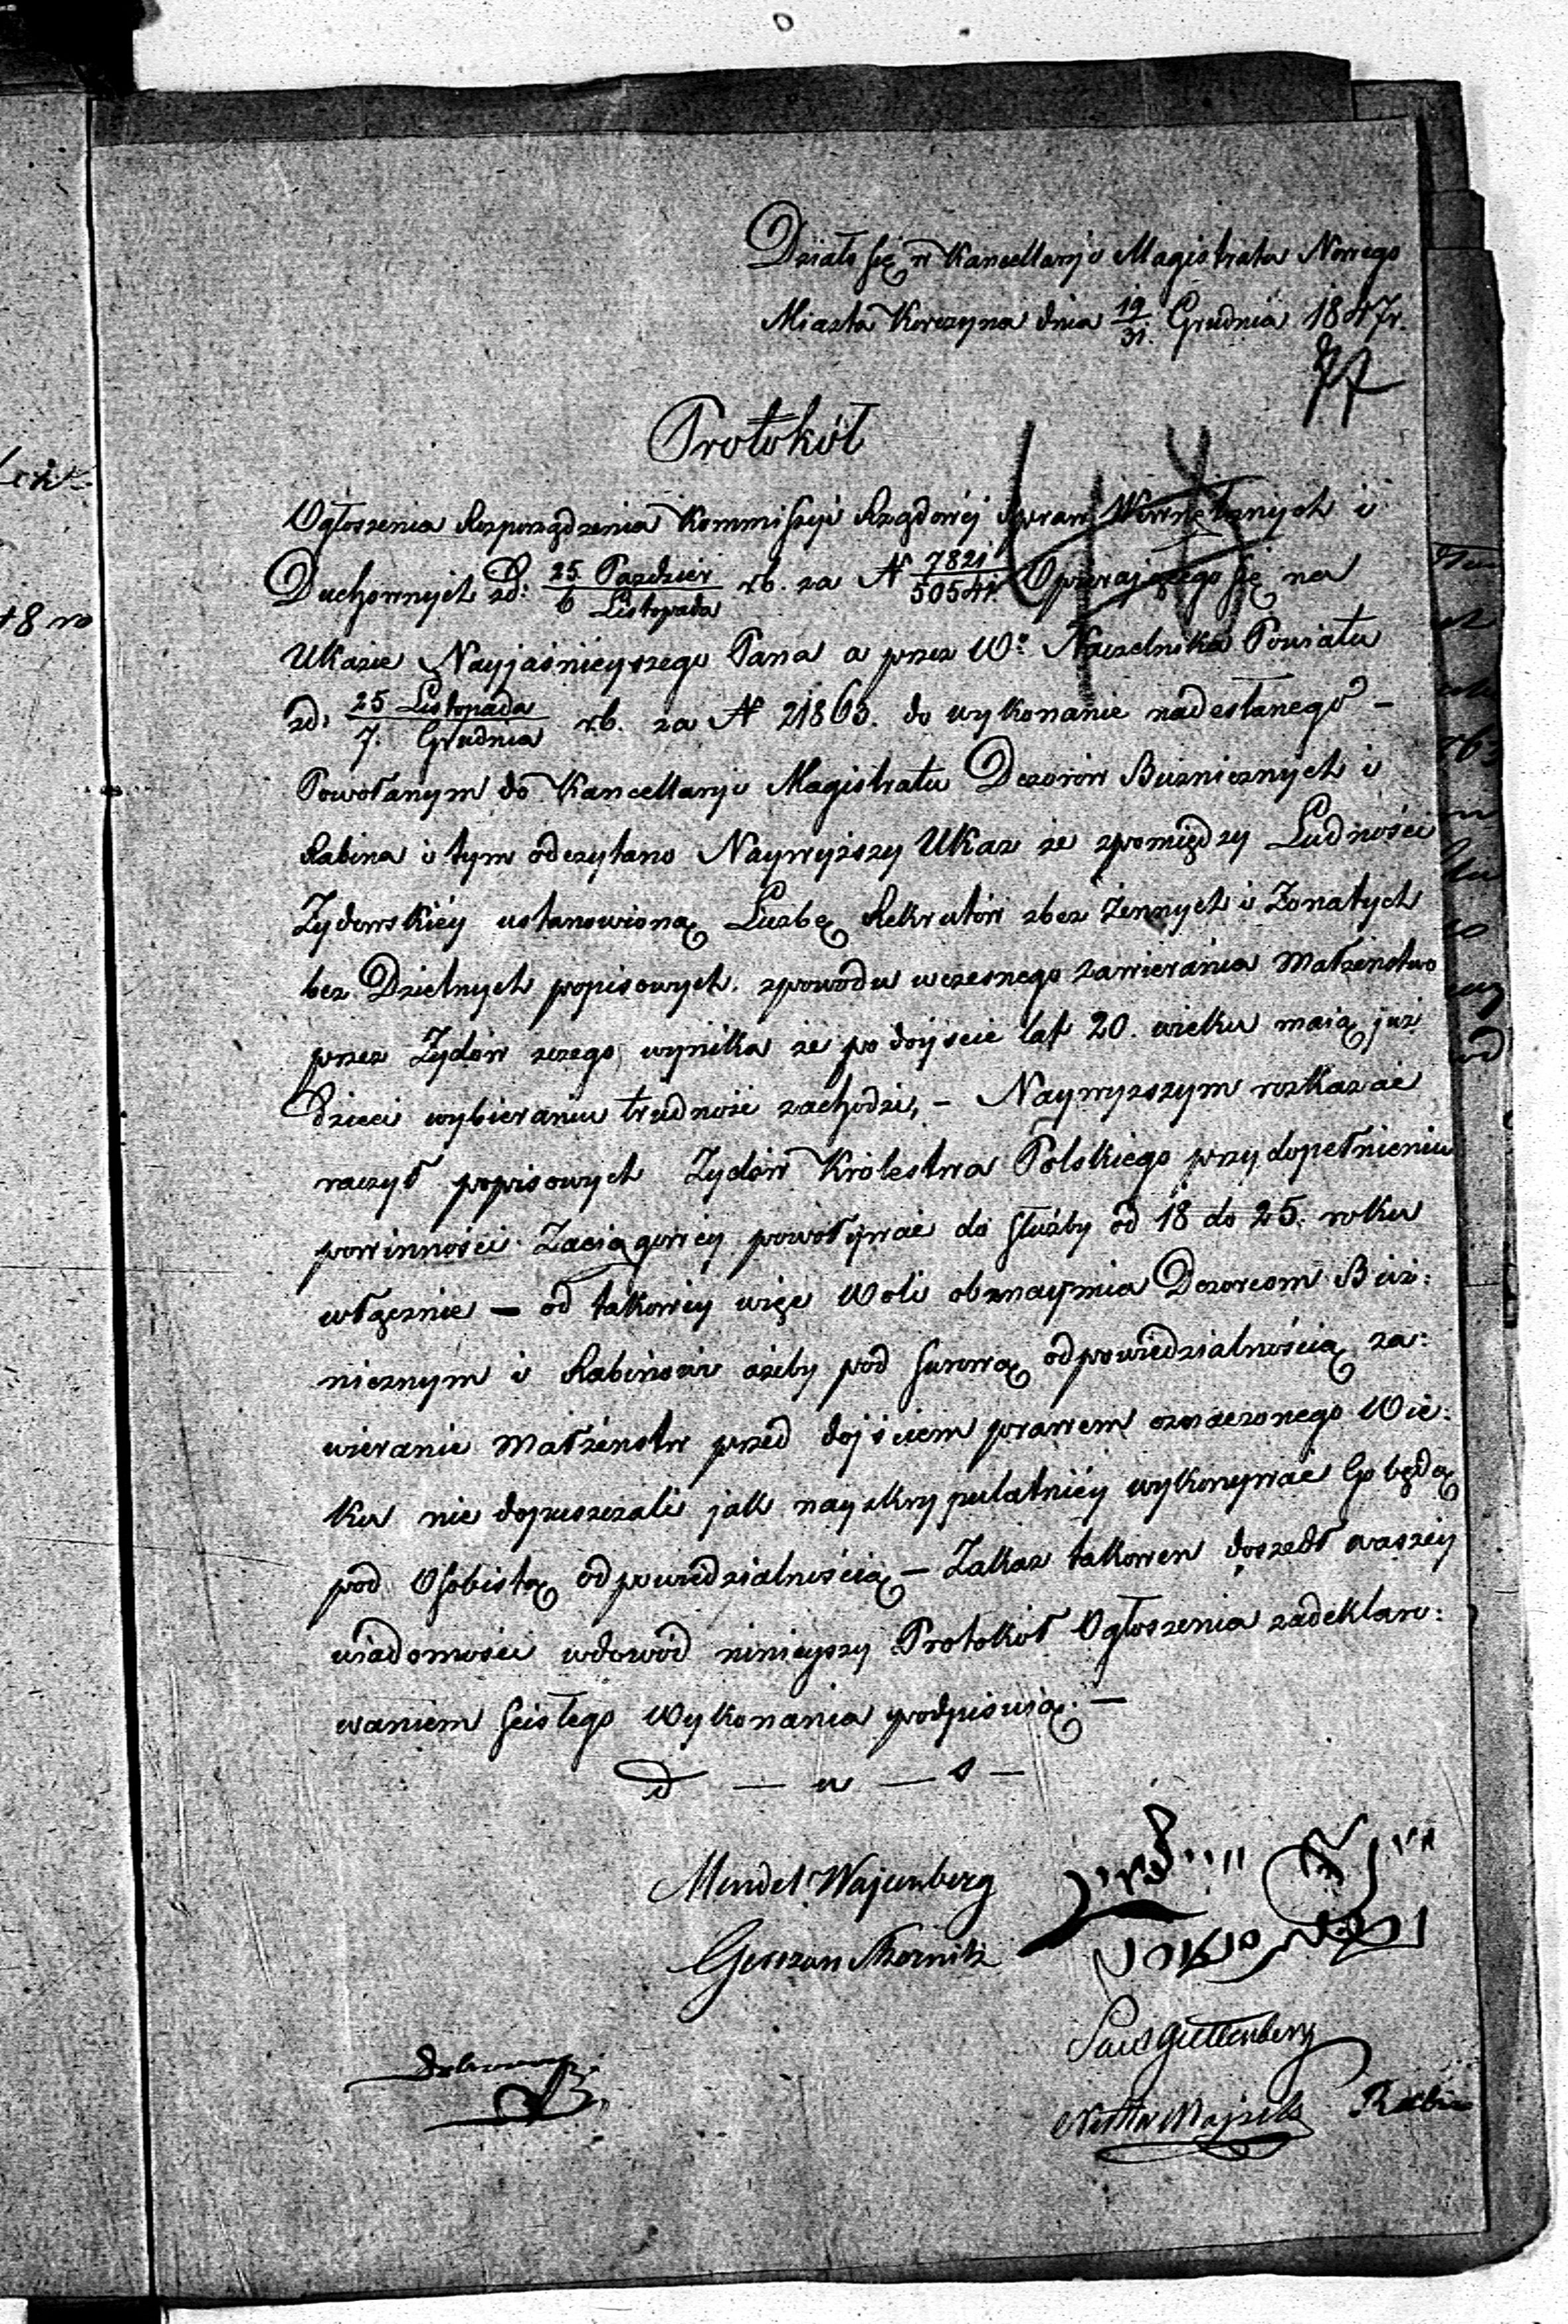 Działo się w Kancellaryi Magistratu Nowego
Miasta Korczyna dnia 19/31. Grudnia 1847r.
Protokół
Ogłoszenia Rozporządzenia Kommissyi Rządowéj Spraw Wewnętrznych i
Duchownych zd: 25 Paździer/6 Listopada r.b. za N 7821/50544 Opierającego się na
Ukazie Nayjaśnieyszego Pana a przez Wo Naczelnika Powiatu
zd: 25 Listopada/7. Grudnia r.b. za N 21863. do wykonanie nadesłanego –
Powołanym do Kancellaryi Magistratu Dozorów Bużnicznych i
Rabina i tym odczytano Naywyższy Ukaz że zpomiędzy Ludności
Żydowskiéy ustanowioną Liczbę Rekrutów zbez żennych i Żonatych
bez Dzietnych popisowych. zpowodu wczesnego zawierania Małżeństwo
przez Żydów zczego wynika że po dojście lat 20. wieku maią już
dzieci wybieraniu trudność zachodzi, – Naywyższym rozkazać
raczył popisowych Żydów Królestwa Polskiego przy dopełnieniu
powinności Zaciągowéy powoływać do służby od 18 do 25. roku
włącznie – od takowéy więc Woli obznaymia Dozorcom Buż:
nicznym i Rabinowi ażeby pod surową odpowiedzialnością za:
wieranie Małżeństw przed dojściem prawem oznaczonego Wie:
ku nie dopuszczali jak nayskrypulatniéy wykonywać Go będą
pod Osobistą odpowiedzialnością – Zakaz takowen doszedł naszéy
wiadomości wdowód ninieyszy Protokół Ogłoszenia zadeklaro:
waniem ścisłego Wykonania podpisuią. –
d — u — s —
Mendel Wajunberg
Saul Guttenberg
Rabin